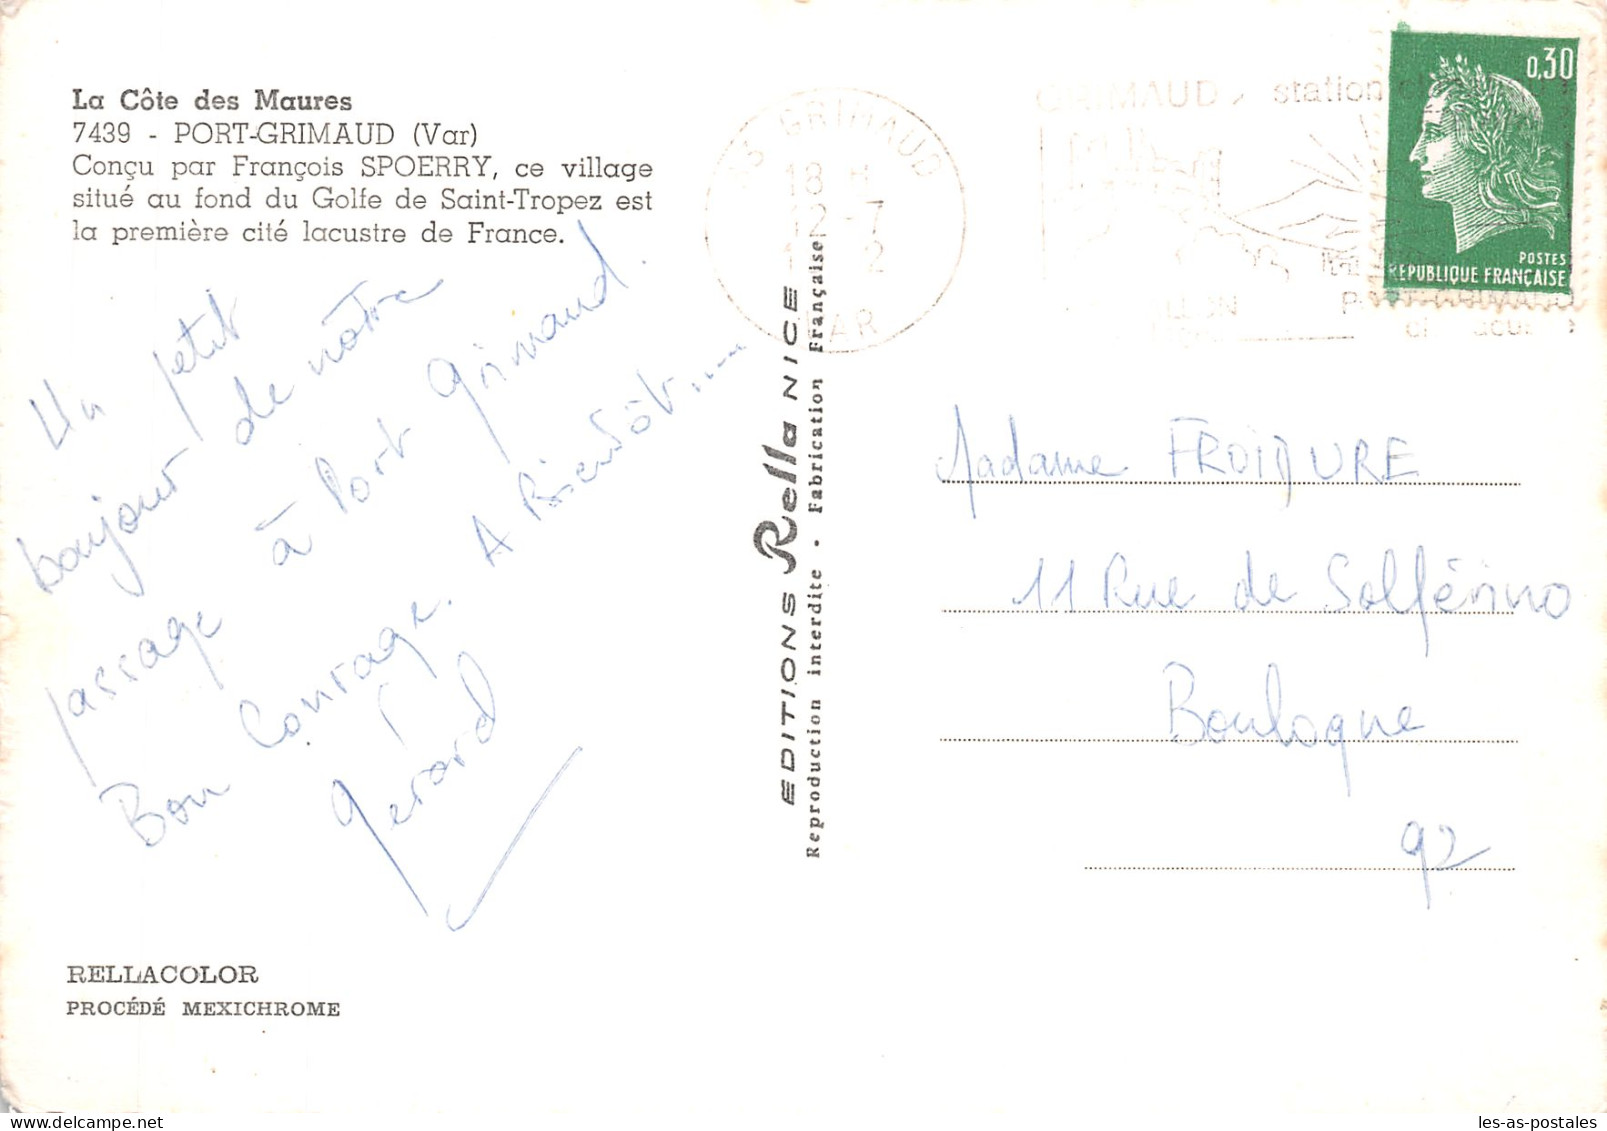 La Côte des Maures
7439 - PORT-GRIMAUD (Var)
Conçu par François SPOERRY, ce village
situé au fond du Golfe de Saint-Tropez est
la première cité lacustre de France.
Un petit
bonjour de notre
passage à Port Grimaud.
Bon Courage. A Bientôt.....
Gérard
RELLACOLOR
PROCÉDÉ MEXICHROME
EDITIONS Rella NICE
Reproduction interdite - Fabrication Française
GRIMAUD
18 H
12-7
VAR
GRIMAUD, station
0,30
POSTES
REPUBLIQUE FRANÇAISE
Madame FROIDURE
11 Rue de Solférino
Boulogne
92
les-as-postales